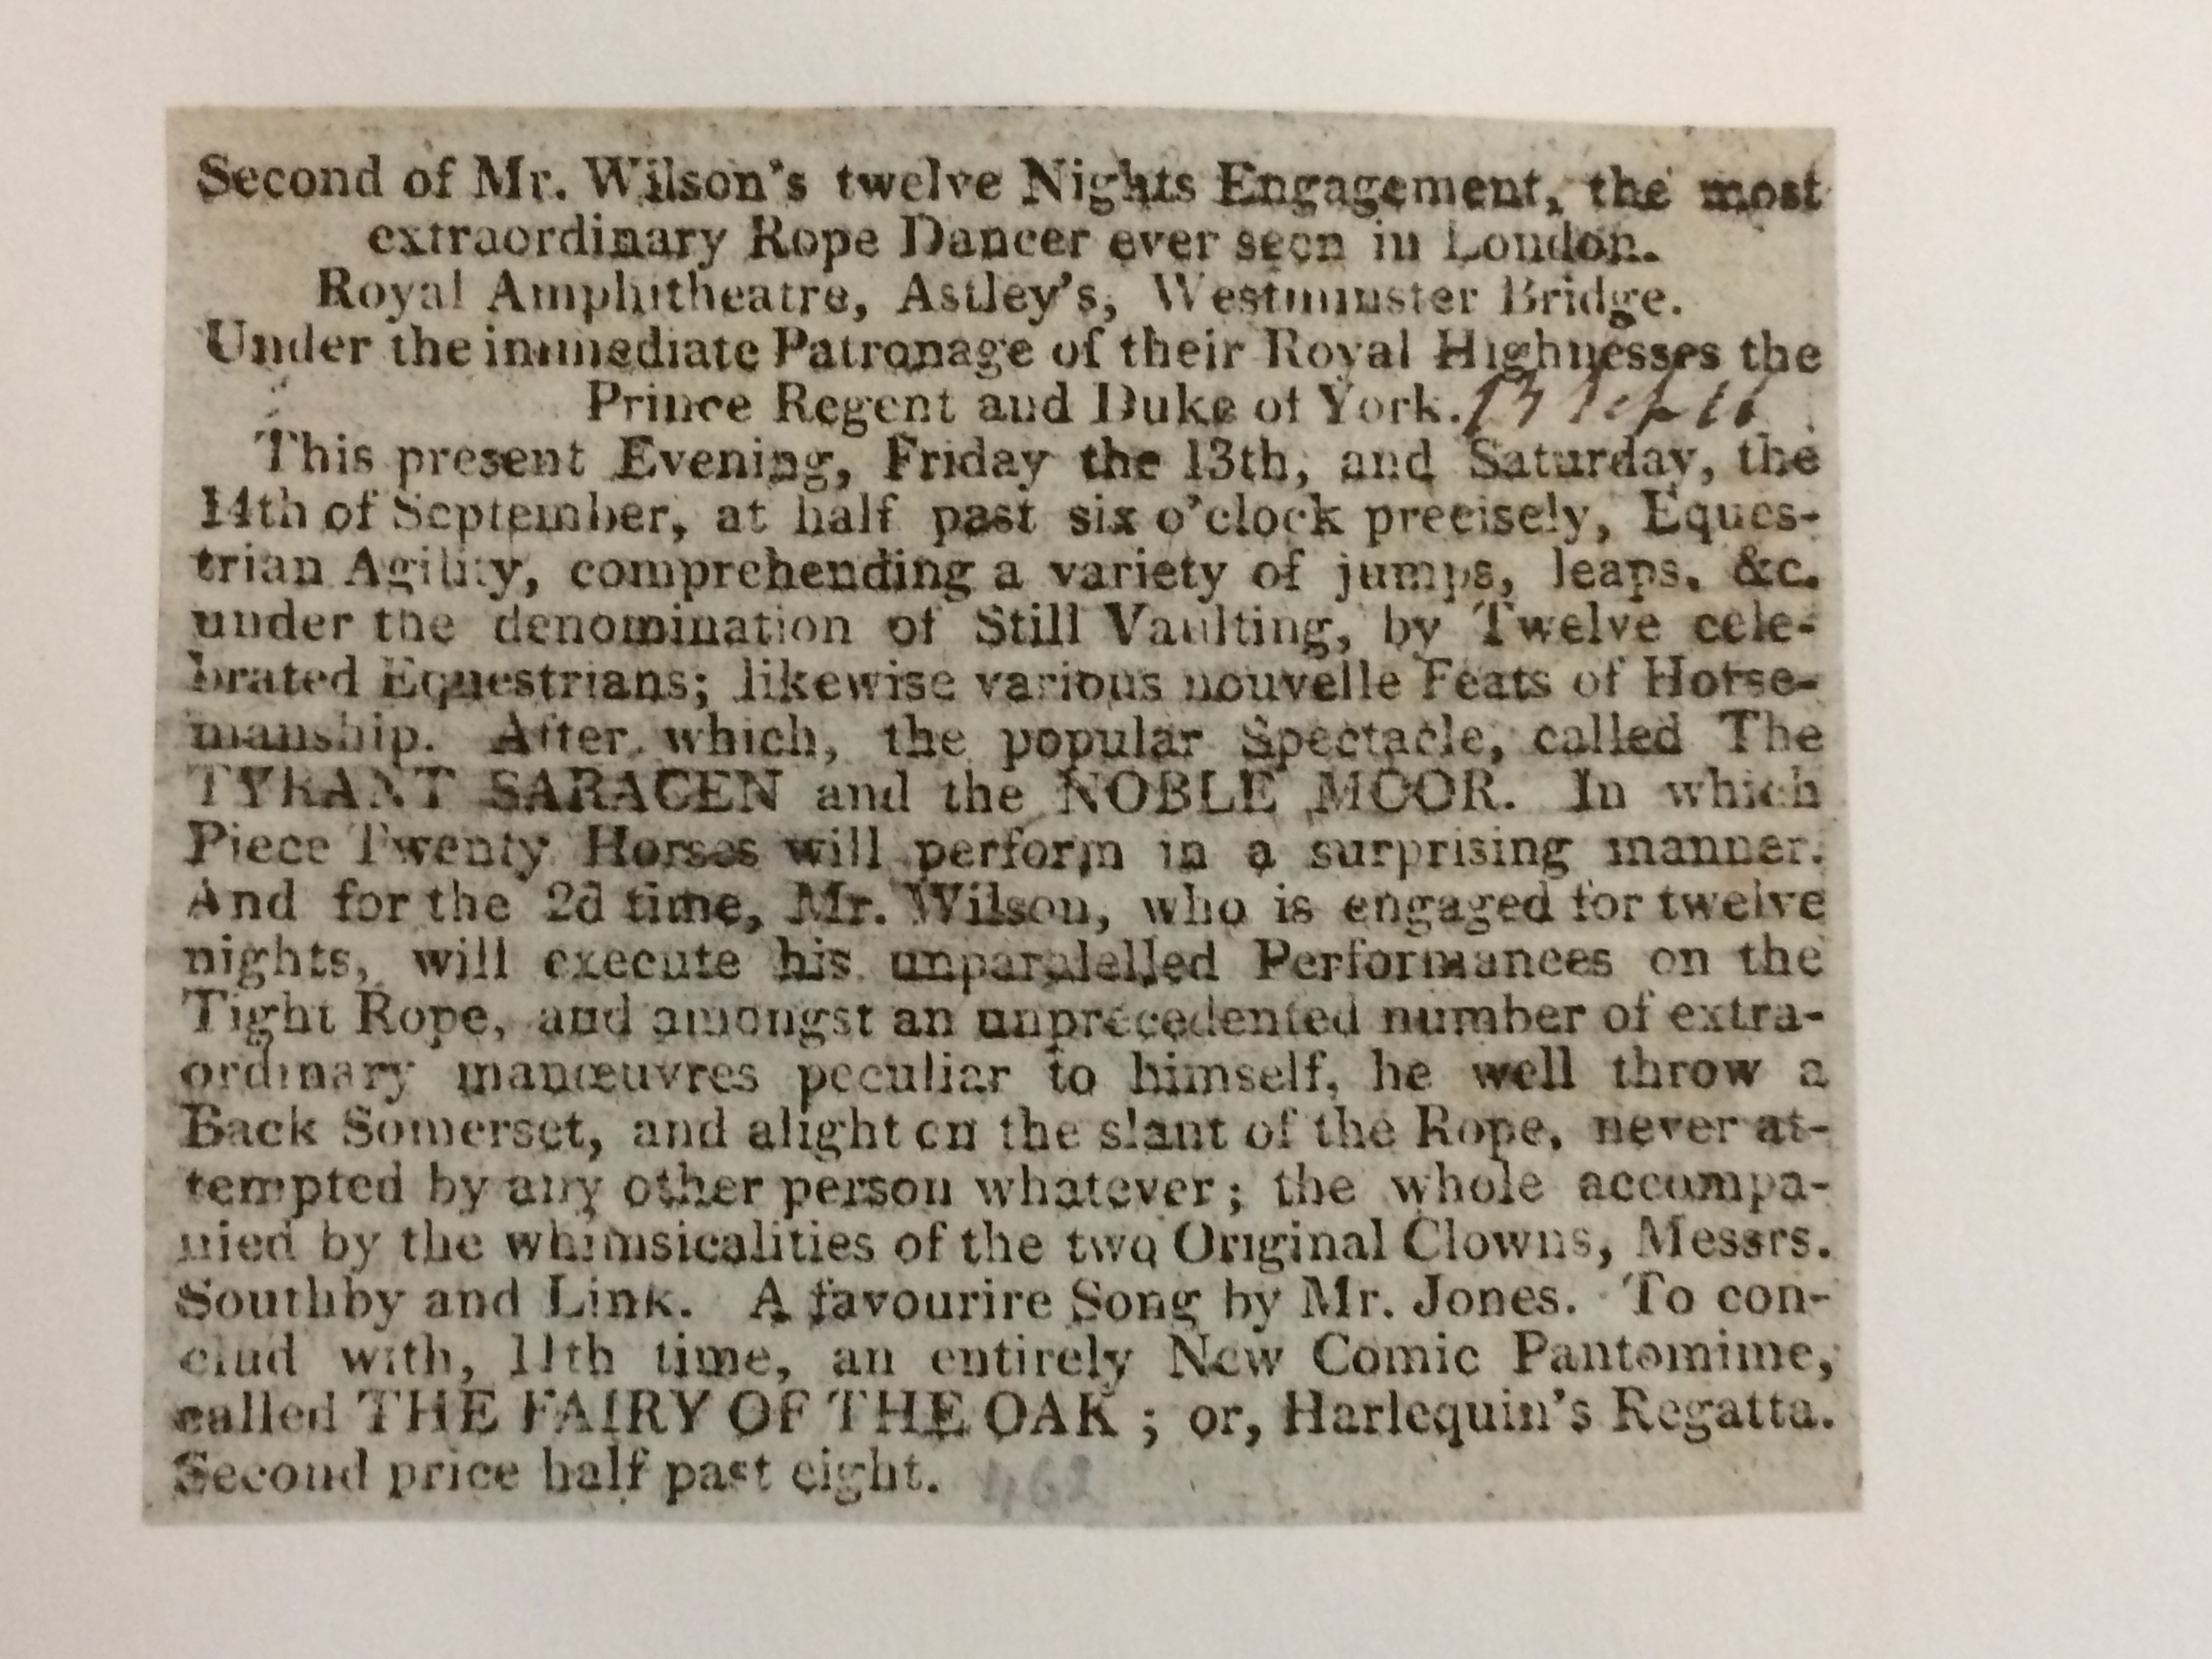 Second of Mr. Wilson's twelve Nights Engagement, the most
extraordinary Rope Dancer ever seen in London.
Royal Amphitheatre, Astley's, Westminster Bridge.
Under the immediate Patronage of their Royal Highnesses the
Prince Regent and Duke of York. 13
This present Evening, Friday the 13th, and Saturday, the
14th of September, at half past six o'clock precisely, Eques-
trian Agility, comprehending a variety of jumps, leaps, &c.
under the denomination of Still Vaulting, by Twelve cele-
brated Equestrians; likewise various nouvelle Feats of Horse-
manship. After which, the popular Spectacle, called The
TYRANT SARACEN and the NOBLE MOOR. In which
Piece Twenty Horses will perform in a surprising manner.
And for the 2d time, Mr. Wilson, who is engaged for twelve
nights, will execute his unparalelled Performances on the
Tight Rope, and amongst an unprecedented number of extra-
ordinary manœuvres peculiar to himself, he well throw a
Back Somerset, and alight on the slant of the Rope, never at-
tempted by any other person whatever; the whole accompa-
nied by the whimsicalities of the two Original Clowns, Messrs.
Southby and Link. A favourire Song by Mr. Jones. To con-
clud with, 11th time, an entirely New Comic Pantomime,
called THE FAIRY OF THE OAK; or, Harlequin's Regatta.
Second price half past eight. 462